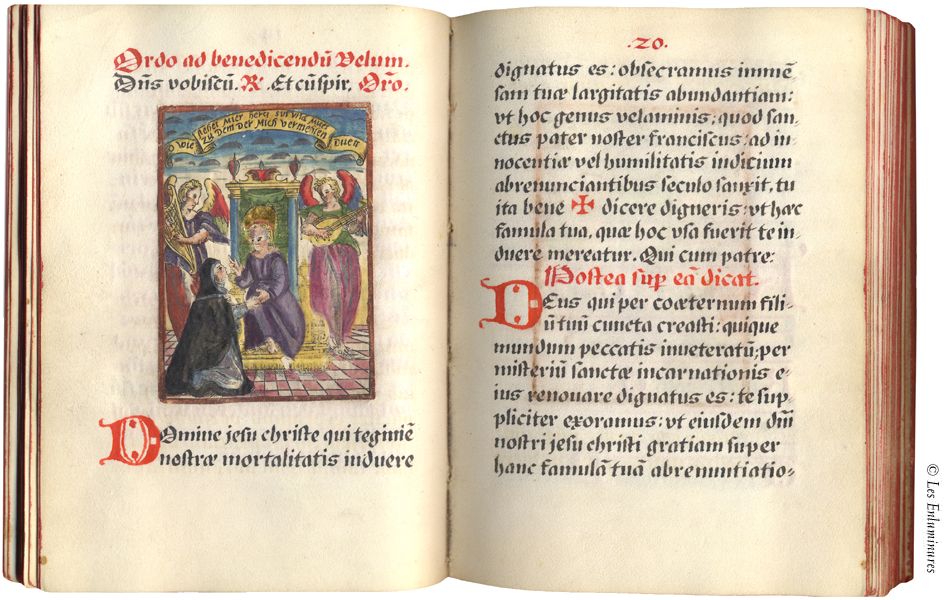 Ordo ad benedicendū Velum.
Dn̄s vobiscū. R. Et cū spir. Orō.
O wie
Dem Der Mich
Domine jesu christe qui tegimē
nostræ mortalitatis induere
.20.
dignatus es: obsecramus immē,
sam tuæ largitatis abundantiam:
vt hoc genus velaminis, quod san,
ctus pater noster franciscus, ad in,
nocentiæ vel humilitatis indicium
abrenunciantibus seculo sanxit, tu
ita bene ✠ dicere digneris: vt hæc
famula tua, quæ hoc vsa fuerit te in,
duere mereatur. Qui cum patre:
Postea sup eā dicat.
Deus qui per coæternum fili,
ū tuū cuncta creasti: quique
mundum peccatis inveteratū, per
misteriū sanctæ incarnationis e,
ius renouare dignatus es: te sup,
pliciter exoramus: vt eiusdem dn̄i
nostri jesu christi gratiam super
hanc famulā tuā abrenuntiatio,
© Les Enluminures